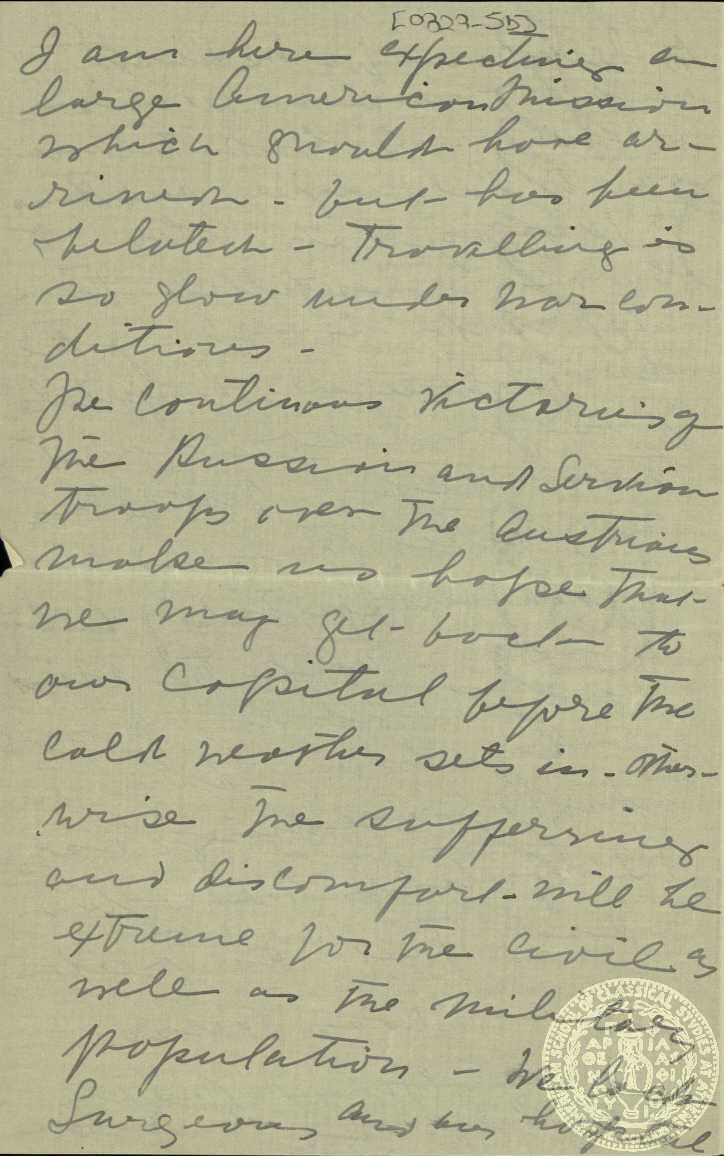 [0327-5b]
I am here expecting a
large American Mission
which should have ar-
rived - but has been
belated - Travelling is
so slow under war con-
ditions -
The continuous victories of
the Russian and Servian
troops over the Austrians
make us hope that
we may get back to
our capital before the
cold weather sets in - other-
wise the suffering
and discomfort will be
extreme for the civil as
well as the military
population - We
Surgeons and
SCHOOL OF CLASSICAL STUDIES AT